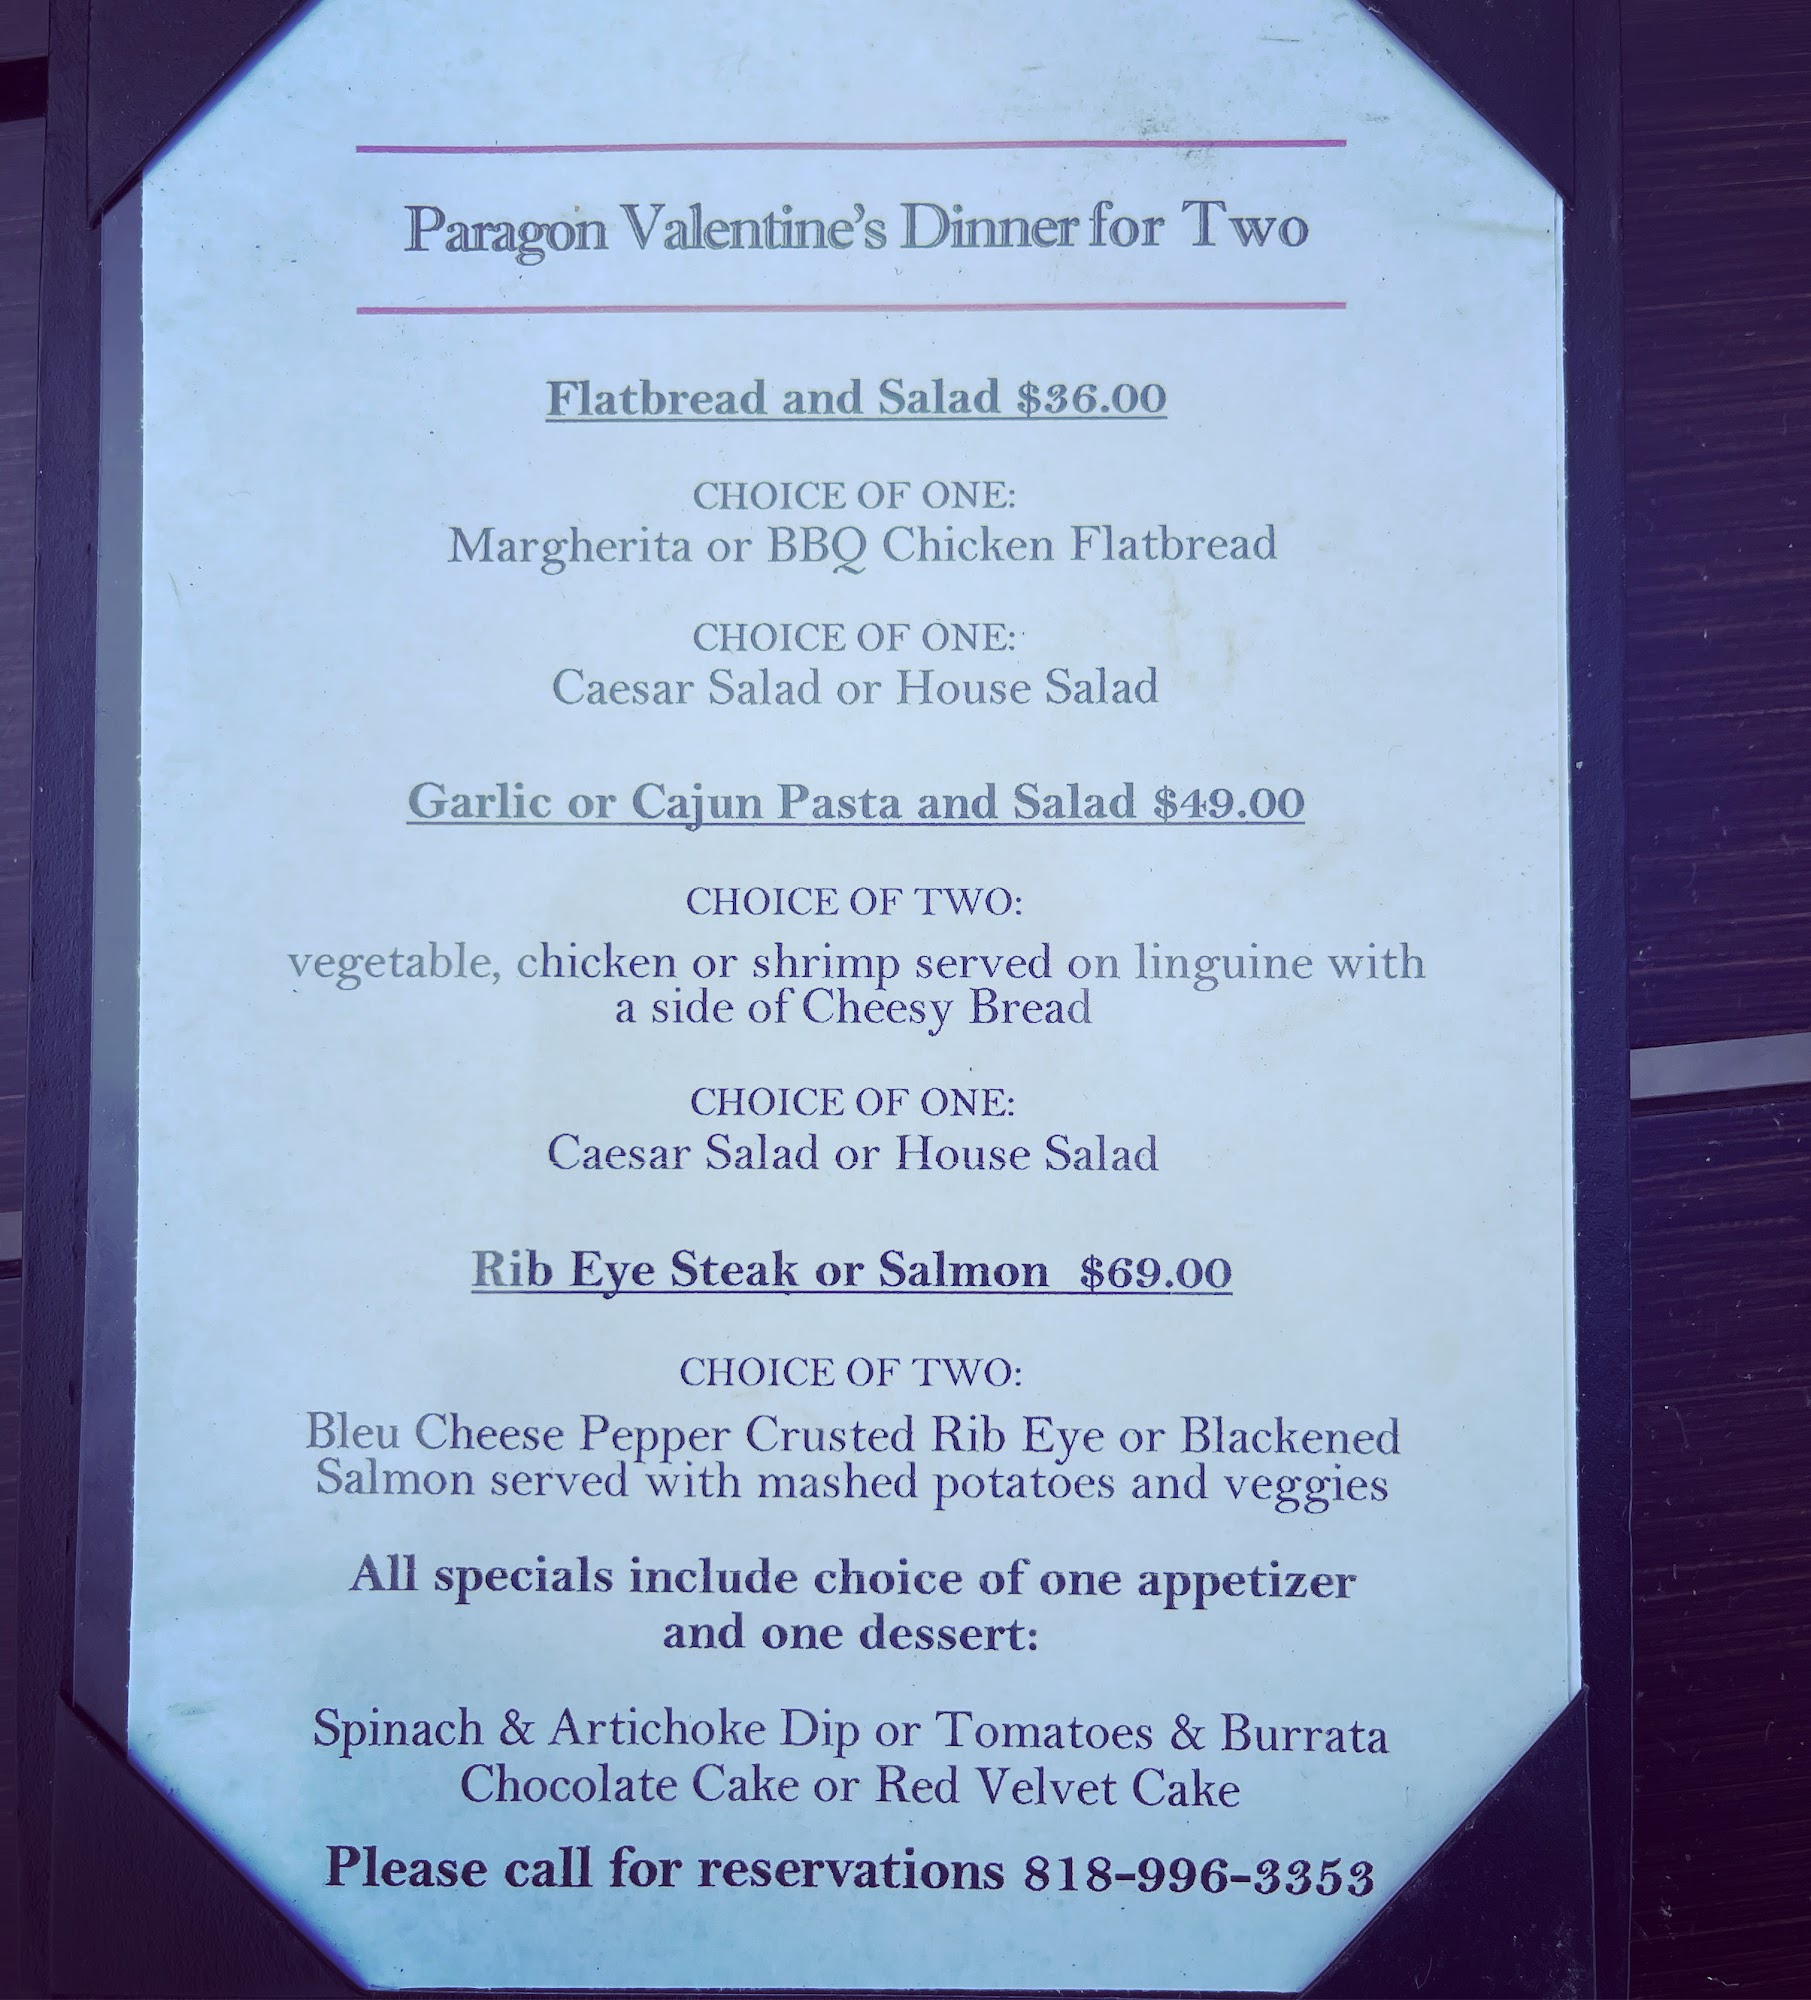 Paragon Valentine's Dinner for Two
Flatbread and Salad $36.00
CHOICE OF ONE:
Margherita or BBQ Chicken Flatbread
CHOICE OF ONE:
Caesar Salad or House Salad
Garlic or Cajun Pasta and Salad $49.00
CHOICE OF TWO:
vegetable, chicken or shrimp served on linguine with
a side of Cheesy Bread
CHOICE OF ONE:
Caesar Salad or House Salad
Rib Eye Steak or Salmon $69.00
CHOICE OF TWO:
Bleu Cheese Pepper Crusted Rib Eye or Blackened
Salmon served with mashed potatoes and veggies
All specials include choice of one appetizer
and one dessert:
Spinach & Artichoke Dip or Tomatoes & Burrata
Chocolate Cake or Red Velvet Cake
Please call for reservations 818-996-3353